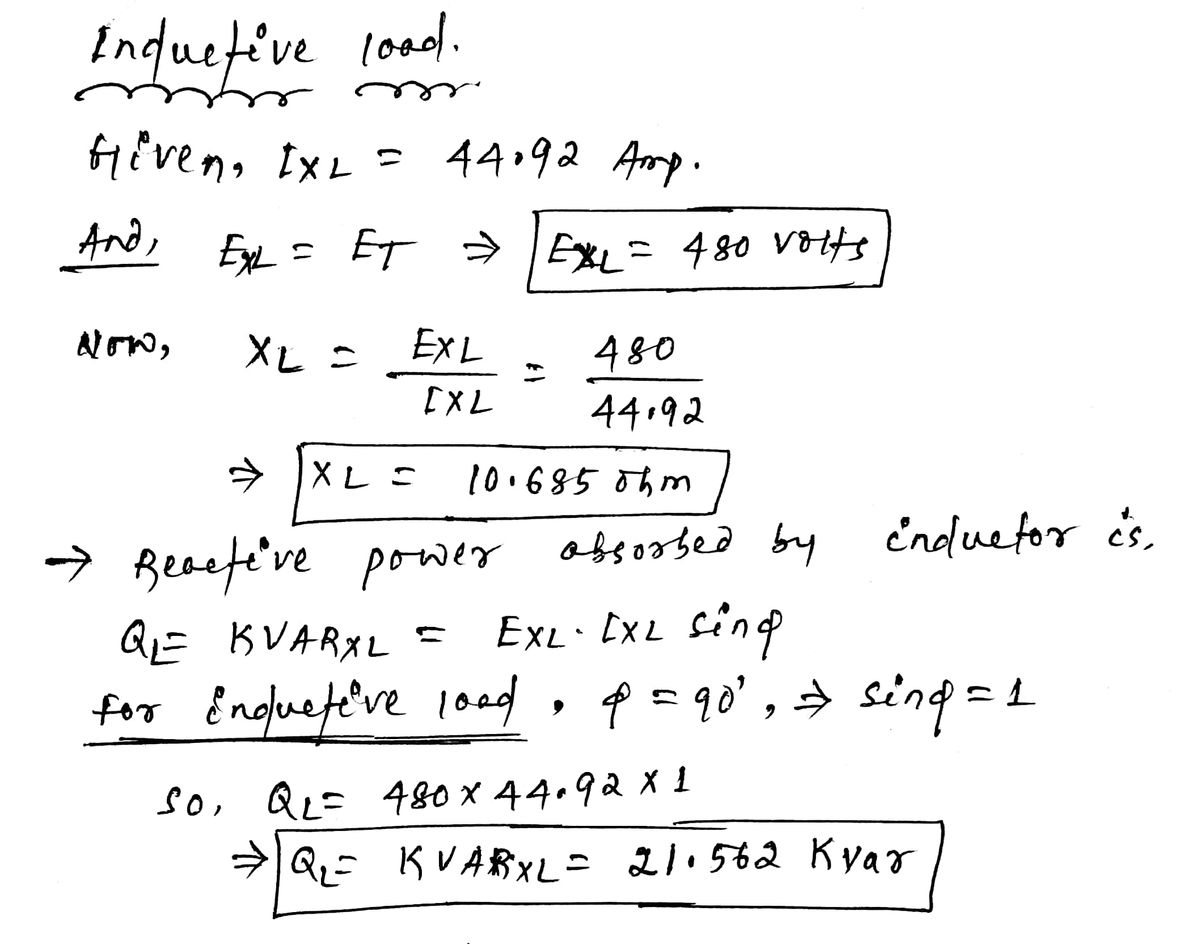 Inductive load.
Given, IXL = 44.92 Amp.
And, EXL = ET ⇒ EXL = 480 volts
Now, XL = EXL / IXL = 480 / 44.92
⇒ XL = 10.685 ohm
→ Reactive power absorbed by inductor is.
QL = KVARXL = EXL · IXL sinφ
for inductive load, φ = 90°, ⇒ sinφ = 1
So, QL = 480 x 44.92 x 1
⇒ QL = KVARXL = 21.562 Kvar